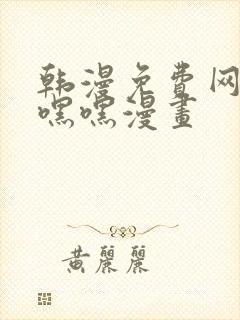 韩漫免费网
嘿嘿漫畫
黄麗麗